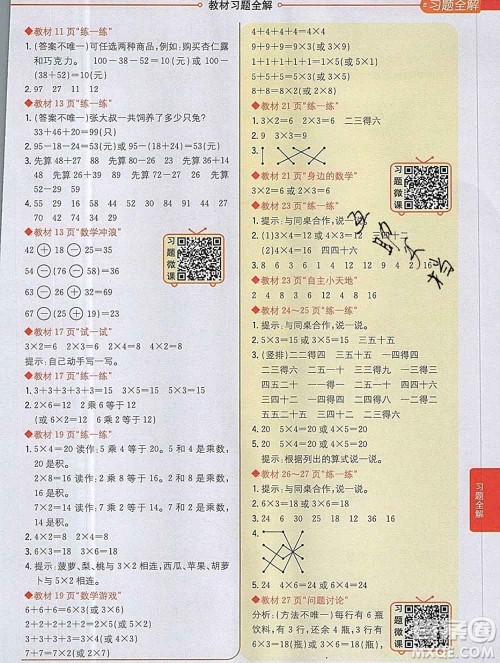 教材习题全解
习题全解
◆教材 11 页“练一练”
1. (答案不唯一)可任选两种商品，例如：购买杏仁露
和巧克力。 100－38－52＝10(元)或 100－
(38＋52)＝10(元)
2. 97 27 11 12
◆教材 13 页“练一练”
1. (答案不唯一)张大叔一共饲养了多少只兔?
33＋46＋20＝99(只)
2. 95－18－24＝53(元)或 95－(18＋24)＝53(元)
3. 先算 48＋27 88 先算 25＋26 88 先算 36＋14
48 先算 56－31 31 先算 80－24 38 先算
52－35 50
4. 55 29 42 74 27 44 18 68
◆教材 13 页“数学冲浪”
42 ＋ 18 － 25＝35
56 － 30 － 10＝16
38 － 20 ＋ 33＝51
67 － 25 ＋ 12＝54
习题微课
◆教材 17 页“试一试”
3×2＝6 2×4＝8 2×5＝10
提示：自己动手写一写。
◆教材 17 页“练一练”
1. 3＋3＋3＋3＋3＝15 3×5＝15 5×3＝15
2. 2×6＝12 2 乘 6 等于 12
(或 6×2＝12 6 乘 2 等于 12)
◆教材 19 页“练一练”
1. 5×4＝20 读作：5 乘 4 等于 20。5 和 4 是乘数，
20 是积。
2×4＝8 读作：2 乘 4 等于 8。2 和 4 是乘数，
8 是积。
2. 6×3＝18 3×6＝18
3. 2×4＝8 3×5＝15 3×6＝18
4. 提示：菠萝、梨、桃与 3×2 相连，西瓜、苹果、葫芦
卜与 5×2 相连。
◆教材 19 页“数学游戏”
6＋6＋6＝6×3(或 3×6)
2＋2＋2＋2＝2×4(或 4×2)
7＋7＋7＋7＋7＝7×5(或 5×7)
4＋4＋4＋4＝4×4
9＋9＋9＝3×9(或 9×3)
1＋1＋1＋1＋1＝1×5(或 5×1)
5＋5＝5×2(或 2×5)
8＋8＝8×2(或 2×8)
◆教材 21 页“练一练”
1. 3 2×3＝6 3×2＝6 二三得六
2. 9 3×3＝9
3.
◆教材 21 页“身边的数学”
3×2＝6 或 2×3＝6
习题微课
◆教材 23 页“练一练”
1. 提示：与同桌合作，说一说。
2. (1)3×4＝12 或 4×3＝12 三四十二
(2)4×4＝16 四四十六
3. 8 6 3 4 1 9 16 2 12 9 4 2 16
◆教材 23 页“自主小天地”
2 3 4 6 8 9 12 16
◆教材 24～25 页“练一练”
1. 提示：与同桌合作，说一说。
2. 3×5＝15 或 5×3＝15 三五十五
3. (竖排)二二得四 一五得五 三五十五
二三得六 二五一十 三三得九
四五二十 一三得三 二四得八
五五二十五 一四得四 四四十六
三四十二 一一得一 一二得二
4. 20 5×4＝20 或 4×5＝20
5. 20 5×4＝20 或 4×5＝20
提示：根据列出的算式说一说。
◆教材 26～27 页“练一练”
1. 6×2＝12 或 2×6＝12
6×3＝18 或 3×6＝18
2. 24 6 30 15 18 12 16 36
3. 6×3＝18 或 3×6＝18
4.
5. 24 4×6＝24 或 6×4＝24
◆教材 27 页“问题讨论”
分析：(方法不唯一)每行有 6 瓶
饮料，有 3 行，还余 4 瓶，3 行有
习题微课
习题全解